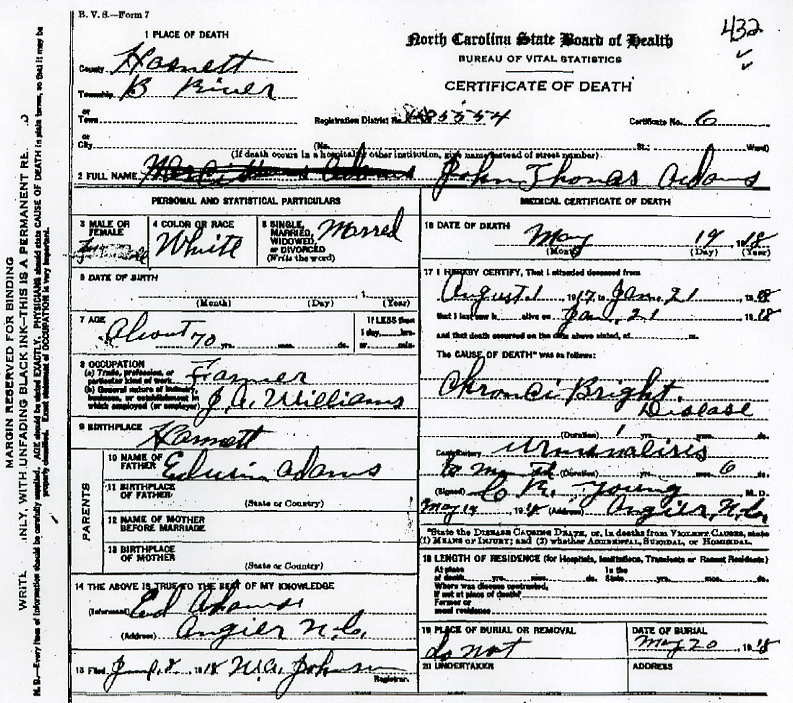 B. V. S.—Form 7
432
1 PLACE OF DEATH
North Carolina State Board of Health
BUREAU OF VITAL STATISTICS
CERTIFICATE OF DEATH
County Harnett
Township B River
or
Town
Registration District No. 485554
Certificate No. 6
or
City
(No. St.; Ward)
(If death occurs in a hospital or other institution, give name instead of street number)
2 FULL NAME John Thomas Adams
PERSONAL AND STATISTICAL PARTICULARS
3 MALE OR FEMALE
4 COLOR OR RACE White
5 SINGLE, MARRIED, WIDOWED, or DIVORCED (Write the word) Marred
6 DATE OF BIRTH
(Month) (Day) 1 (Year)
7 AGE About 70 yrs. mos. ds.
If LESS than 1 day, hrs. or min.
8 OCCUPATION
(a) Trade, profession, or particular kind of work Farmer
(b) General nature of industry, business, or establishment in which employed (or employer) J. A. Williams
9 BIRTHPLACE Harnett
PARENTS
10 NAME OF FATHER Edwin Adams
11 BIRTHPLACE OF FATHER
(State or Country)
12 NAME OF MOTHER BEFORE MARRIAGE
13 BIRTHPLACE OF MOTHER
(State or Country)
14 THE ABOVE IS TRUE TO THE BEST OF MY KNOWLEDGE
(Informant) Ed Adams
(Address) Angier N.C.
15 Filed 1918 Johnson
Registrar.
MEDICAL CERTIFICATE OF DEATH
16 DATE OF DEATH
May 19 1918
(Month) (Day) (Year)
17 I HEREBY CERTIFY, That I attended deceased from
August 1 1917 to Jan. 21 1918
that I last saw h alive on Jan. 21 1918
and that death occurred on the date above stated, at m.
The CAUSE OF DEATH* was as follows:
Chronci Bright
Disease
(Duration) 1 yrs. mos. ds.
Contributory
(Duration) yrs. mos. 6 ds.
(Signed) C. R. Young M. D.
May 19 1918 (Address) Angier, N.C.
*State the DISEASE CAUSING DEATH, or, in deaths from VIOLENT CAUSES, state
(1) MEANS OF INJURY; and (2) whether ACCIDENTAL, SUICIDAL, or HOMICIDAL.
18 LENGTH OF RESIDENCE (for Hospitals, Institutions, Transients or Recent Residents)
At place of death yrs. mos. ds. In the State yrs. mos. ds.
Where was disease contracted,
if not at place of death?
Former or
usual residence
19 PLACE OF BURIAL OR REMOVAL
do not
DATE OF BURIAL
May 20 1918
20 UNDERTAKER
ADDRESS
MARGIN RESERVED FOR BINDING
WRITE NLY, WITH UNFADING BLACK INK—THIS IS A PERMANENT RE D
N. B.—Every item of information should be carefully supplied. AGE should be stated EXACTLY. PHYSICIANS should state CAUSE OF DEATH in plain terms, so that it may be
properly classified. Exact statement of OCCUPATION is very important.